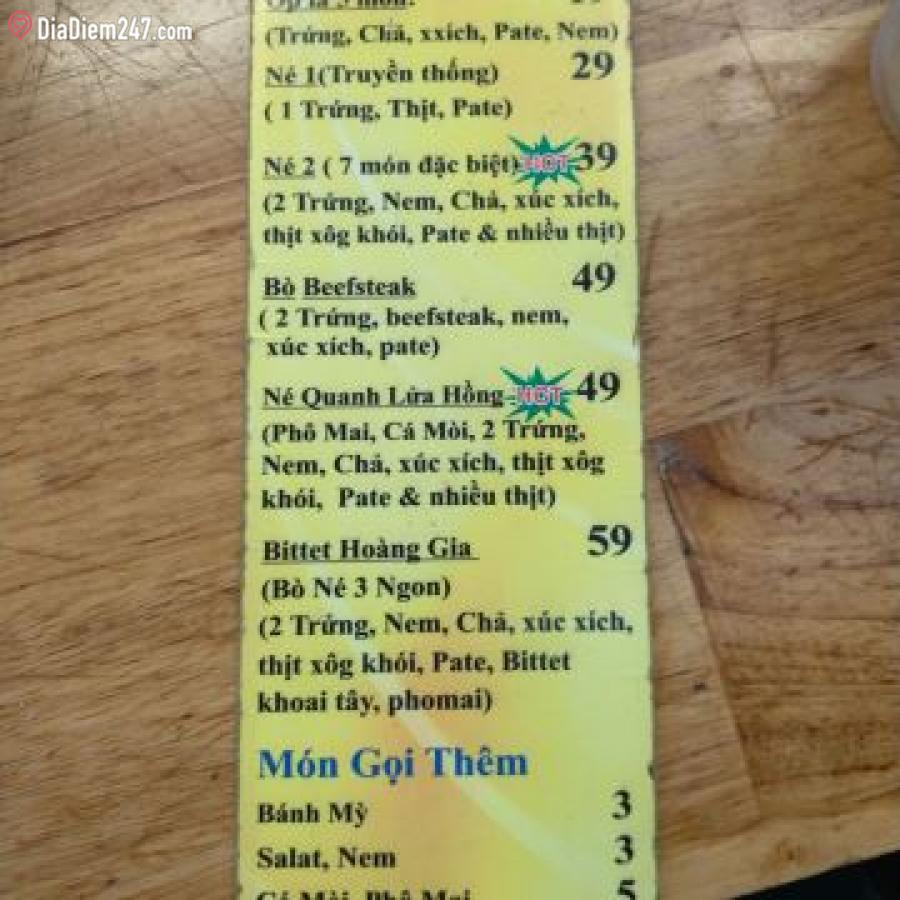 DiaDiem247.com
(Trứng, Chả, xxích, Pate, Nem)
Né 1(Truyền thống) 29
( 1 Trứng, Thịt, Pate)
Né 2 ( 7 món đặc biệt) HOT 39
(2 Trứng, Nem, Chả, xúc xích,
thịt xôg khói, Pate & nhiều thịt)
Bò Beefsteak 49
( 2 Trứng, beefsteak, nem,
xúc xích, pate)
Né Quanh Lửa Hồng HOT 49
(Phô Mai, Cá Mòi, 2 Trứng,
Nem, Chả, xúc xích, thịt xôg
khói, Pate & nhiều thịt)
Bittet Hoàng Gia 59
(Bò Né 3 Ngon)
(2 Trứng, Nem, Chả, xúc xích,
thịt xôg khói, Pate, Bittet
khoai tây, phomai)
Món Gọi Thêm
Bánh Mỳ 3
Salat, Nem 3
Cá Mòi, Phô Mai 5